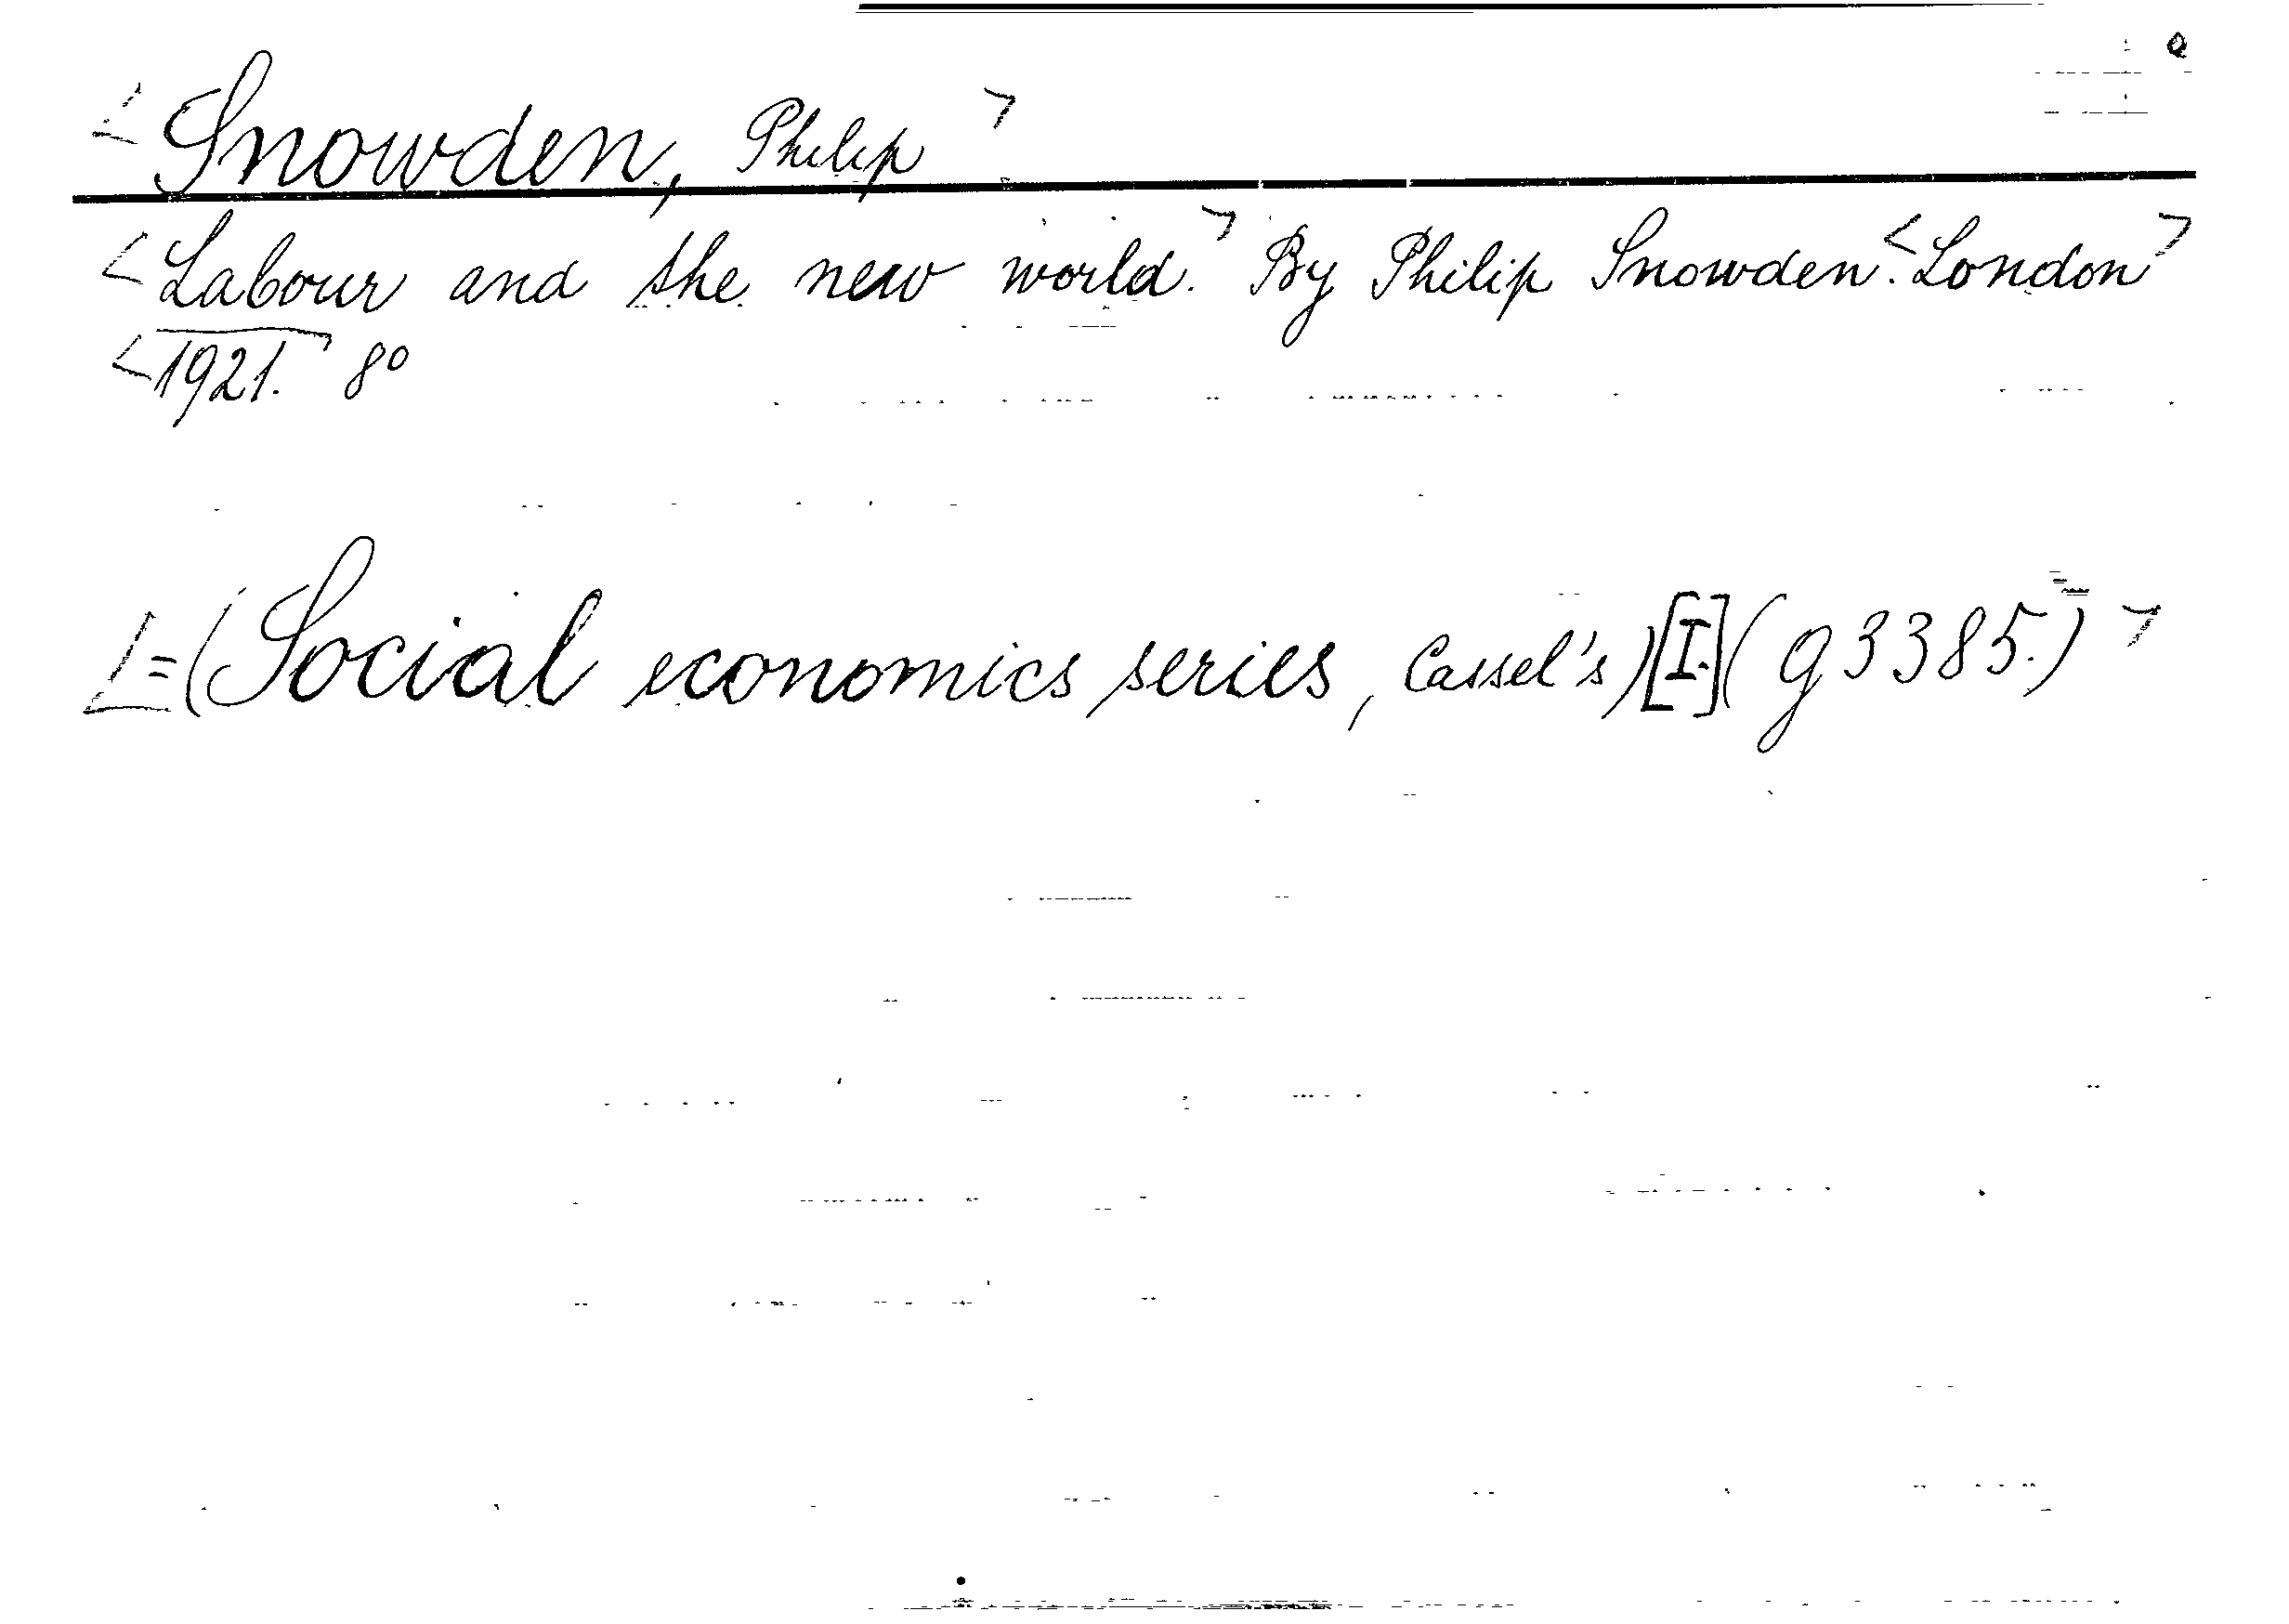 <Snowden, Philip>
<Labour and the new world.> By Philip Snowden. <London>
<1921.> 8º
<=(Social economics series, Cassel's)[I.](g3385.)>